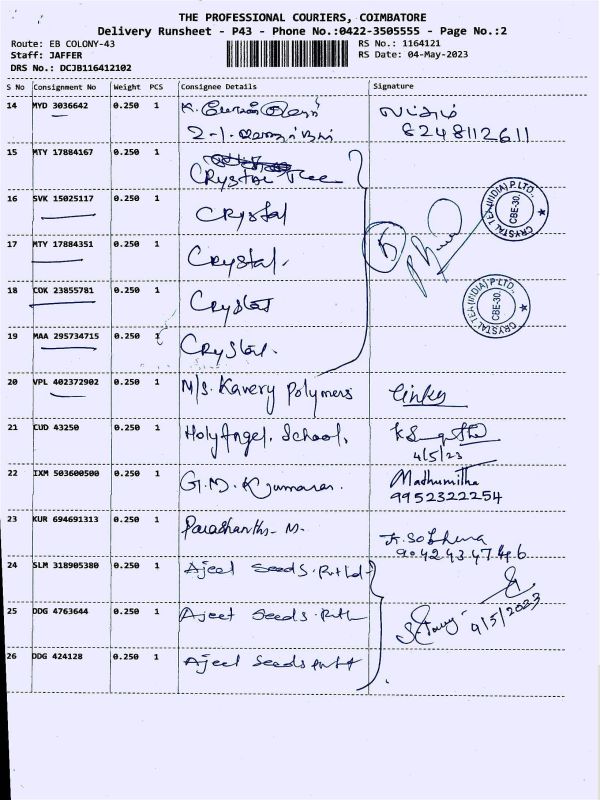 THE PROFESSIONAL COURIERS, COIMBATORE
Delivery Runsheet - P43 - Phone No.:0422-3505555 - Page No.:2
Route: EB COLONY-43
RS No.: 1164121
Staff: JAFFER
RS Date: 04-May-2023
DRS No.: DCJB116412102
S No Consignment No Weight PCS Consignee Details Signature
14 MYD 3036642 0.250 1
8248112611
15 MTY 17884167 0.250 1 Crystal Tea
16 SVK 15025117 0.250 1 Crystal
17 MTY 17884351 0.250 1 Crystal.
18 COK 23855781 0.250 1 Crystal
19 MAA 295734715 0.250 1 Crystal.
CRYSTAL TEA (INDIA) P.LTD. CBE-30. ★
CRYSTAL TEA (INDIA) P.LTD. CBE-30. ★
20 VPL 402372902 0.250 1 M/s. Kavery Polymers
21 CUD 43250 0.250 1 Holy Angel. School,
4/5/23
22 IXM 503600500 0.250 1 G.M. Kumaran. Madhumitha
9952322254
23 KUR 694691313 0.250 1 Parashanth. M.
24 SLM 318905380 0.250 1 Ajeet Seeds. Pvt Ltd
25 DDG 4763644 0.250 1 Ajeet Seeds.
4/5/2023
26 DDG 424128 0.250 1 Ajeet Seeds